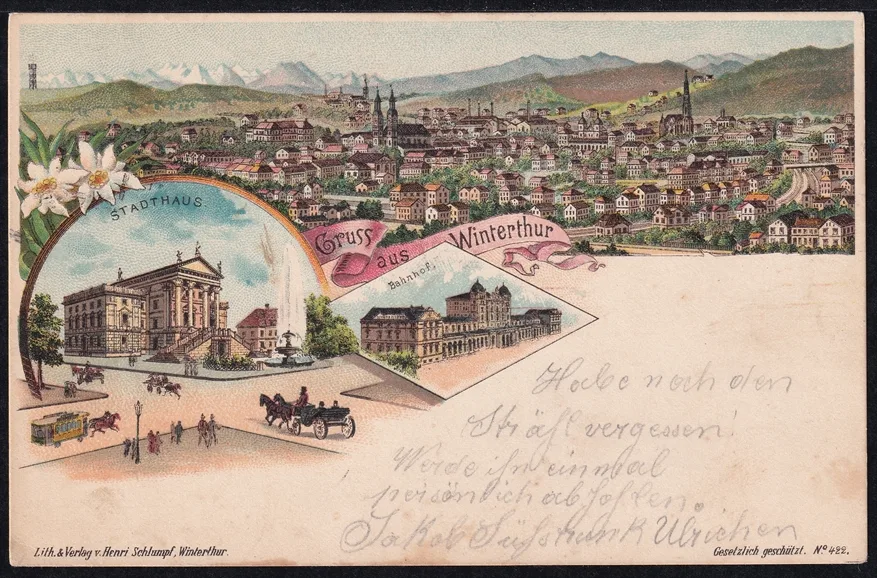 STADTHAUS
Gruss aus Winterthur
Bahnhof.
Habe noch den
Strähl vergessen!
Werde ihn einmal
persönlich abhohlen.
Jakob
Lith. & Verlag v. Henri Schlumpf, Winterthur.
Gesetzlich geschützt. No 422.